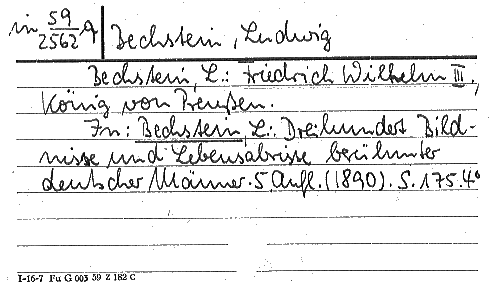 in 59/2562 9 Bechstein, Ludwig
Bechstein, L.: Friedrich Wilhelm III.,
König von Preußen.
In: Bechstein, L.: Dreihundert Bild-
nisse und Lebensabrisse berühmter
deutscher Männer. 5. Aufl. (1890). S. 175. 4°
I-16-7 Fu G 003 59 Z 182 C